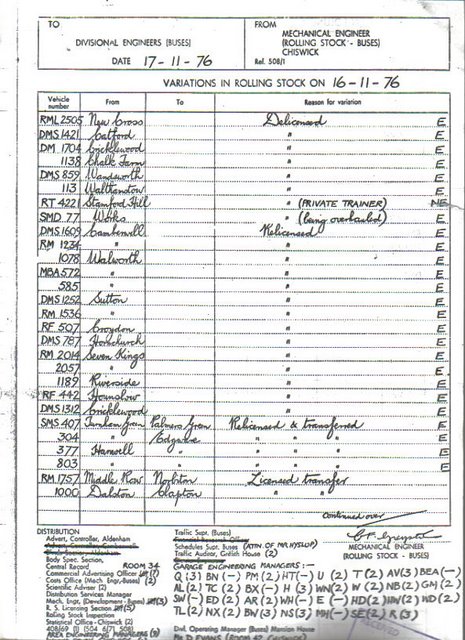 TO
DIVISIONAL ENGINEERS (BUSES)
DATE 17-11-76
FROM
MECHANICAL ENGINEER
(ROLLING STOCK - BUSES)
CHISWICK
Ref. 508/1
VARIATIONS IN ROLLING STOCK ON 16-11-76
Vehicle number From To Reason for variation
RML 2505 New Cross Delicensed E
DMS 1421 Catford " E
DM 1704 Cricklewood " E
1138 Chalk Farm " E
DMS 859 Wandsworth " E
113 Walthamstow " E
RT 4221 Stamford Hill " (PRIVATE TRAINER) NE
SMD 77 Works " (being overhauled) E
DMS 1609 Camberwell Relicensed E
RM 1234 " " E
1078 Walworth " E
MBA 572 " " E
585 " " E
DMS 1252 Sutton " E
RM 1536 " " E
RF 507 Croydon " E
DMS 787 Hornchurch " E
RM 2014 Seven Kings " E
2057 " " E
1189 Riverside " E
RF 442 Hounslow " E
DMS 1312 Cricklewood " E
SMS 407 Turnham Green Palmers Green Relicensed & transferred E
304 " Edgware " " " E
377 Hanwell " " " " E
803 " " " " " E
RM 1757 Middle Row Norbiton Licensed transfer E
1000 Dalston Clapton " " E
Continued over
DISTRIBUTION
Advert. Controller, Aldenham
Body Spec. Section,
Central Record ROOM 34
Commercial Advertising Officer
Costs Office (Mech Engr, Buses) (2)
Scientific Adviser (2)
Distribution Services Manager
Mech. Engr. (Development - Buses)
R. S. Licensing Section
Rolling Stock Inspection
Statistical Office - Chiswick (2)
AREA ENGINEERING MANAGERS
Traffic Supt. (Buses)
Schedules Supt. (Buses) (ATTN. OF MR. HYSLOP)
Traffic Auditor, Griffith House (2)
MECHANICAL ENGINEER
(ROLLING STOCK - BUSES)
GARAGE ENGINEERING MANAGERS:-
Q (3) BN (-) PM (2) HT (-) U (2) T (2) AV (3) BEA (-)
AL (2) TC (2) BX (-) H (3) WN (2) W (2) NB (2) GM (2)
SW (-) ED (2) AR (2) WH (-) E (-) HD (2) HW (2) WD (2)
TL (2) NX (2) BW (3) NS (3) MH (-) SE (2) R (3)
Civil. Operating Manager (Buses) Mansion House